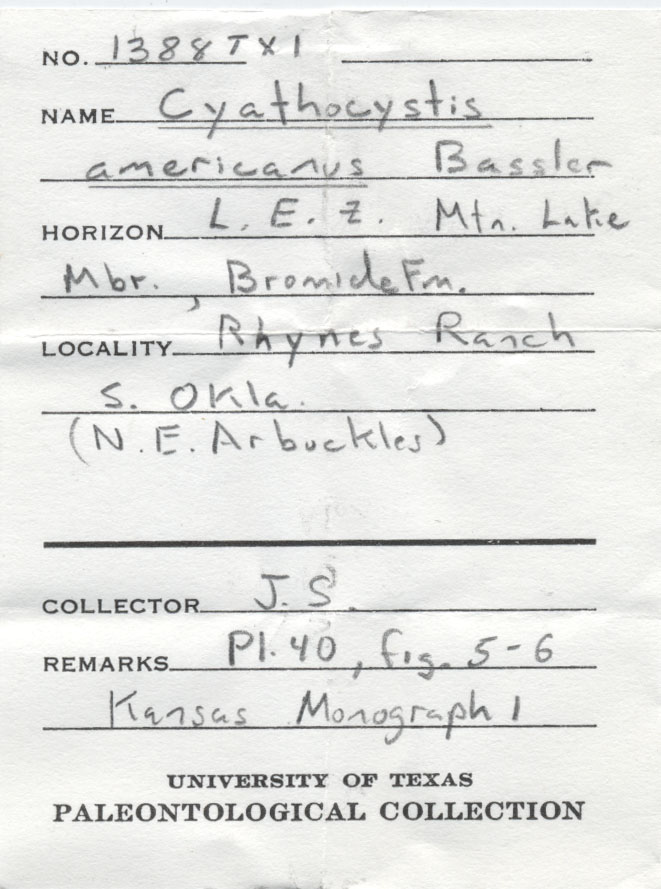 NO. 1388TX1
NAME Cyathocystis
americanus Bassler
HORIZON L. E. Z. Mtn. Lake
Mbr., Bromide Fm.
LOCALITY Rhynes Ranch
S. Okla.
(N.E. Arbuckles)
COLLECTOR J. S.
REMARKS Pl. 40, fig. 5-6
Kansas Monograph 1
UNIVERSITY OF TEXAS
PALEONTOLOGICAL COLLECTION